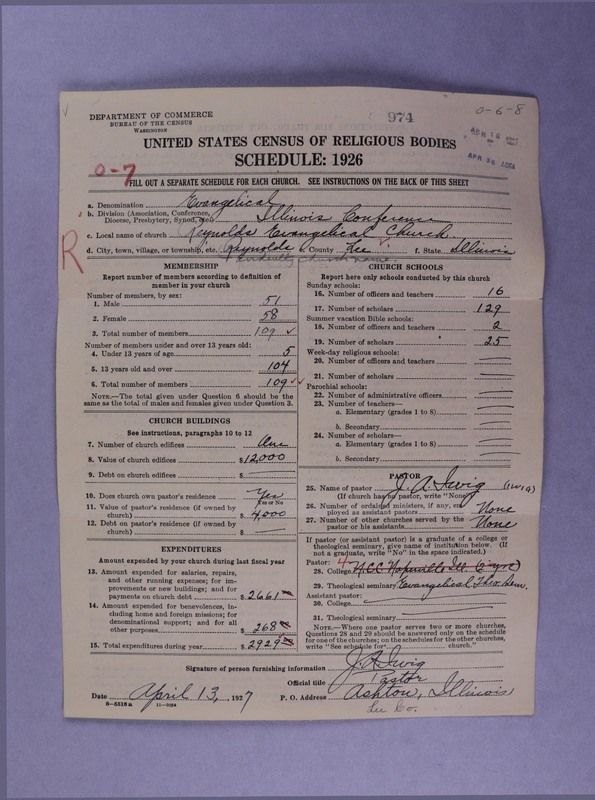 DEPARTMENT OF COMMERCE
BUREAU OF THE CENSUS
WASHINGTON
974
0-6-8
UNITED STATES CENSUS OF RELIGIOUS BODIES
SCHEDULE: 1926
0-7
FILL OUT A SEPARATE SCHEDULE FOR EACH CHURCH. SEE INSTRUCTIONS ON THE BACK OF THIS SHEET
R
a. Denomination Evangelical
b. Division (Association, Conference, Diocese, Presbytery, Synod, etc.) Illinois Conference
c. Local name of church Reynolds Evangelical Church.
d. City, town, village, or township, etc. Reynolds County Lee f. State Illinois
Evidently church name.
MEMBERSHIP
Report number of members according to definition of
member in your church
Number of members, by sex:
1. Male 51
2. Female 58
3. Total number of members 109 ✓
Number of members under and over 13 years old:
4. Under 13 years of age 5
5. 13 years old and over 104
6. Total number of members 109 ✓✓
NOTE.—The total given under Question 6 should be the
same as the total of males and females given under Question 3.
CHURCH BUILDINGS
See instructions, paragraphs 10 to 12
7. Number of church edifices One
8. Value of church edifices $12,000
9. Debt on church edifices $
10. Does church own pastor's residence Yes
Yes or No
11. Value of pastor's residence (if owned by
church) $ 4,000
12. Debt on pastor's residence (if owned by
church) $
EXPENDITURES
Amount expended by your church during last fiscal year
13. Amount expended for salaries, repairs,
and other running expenses; for im-
provements or new buildings; and for
payments on church debt $ 2661
14. Amount expended for benevolences, in-
cluding home and foreign missions; for
denominational support; and for all
other purposes $ 268
15. Total expenditures during year $ 2929
CHURCH SCHOOLS
Report here only schools conducted by this church
Sunday schools:
16. Number of officers and teachers 16
17. Number of scholars 129
Summer vacation Bible schools:
18. Number of officers and teachers 2
19. Number of scholars 25
Week-day religious schools:
20. Number of officers and teachers
21. Number of scholars
Parochial schools:
22. Number of administrative officers
23. Number of teachers—
a. Elementary (grades 1 to 8)
b. Secondary
24. Number of scholars—
a. Elementary (grades 1 to 8)
b. Secondary
PASTOR
25. Name of pastor J. A. Iwig (Iwig)
(If church has no pastor, write "None")
26. Number of ordained ministers, if any, em-
ployed as assistant pastors None
27. Number of other churches served by the
pastor or his assistants None
If pastor (or assistant pastor) is a graduate of a college or
theological seminary, give name of institution below. (If
not a graduate, write "No" in the space indicated.)
Pastor:
28. College N.C.C. Naperville Ill.
29. Theological seminary Evangelical Theo. Sem.
Assistant pastor:
30. College
31. Theological seminary
NOTE.—Where one pastor serves two or more churches,
Questions 28 and 29 should be answered only on the schedule
for one of the churches; on the schedules for the other churches,
write "See schedule for church."
Signature of person furnishing information J. A. Iwig
Official title Pastor
Date April 13, 1927 P. O. Address Ashton, Illinois
8-5518a 11-9054
Lee Co.